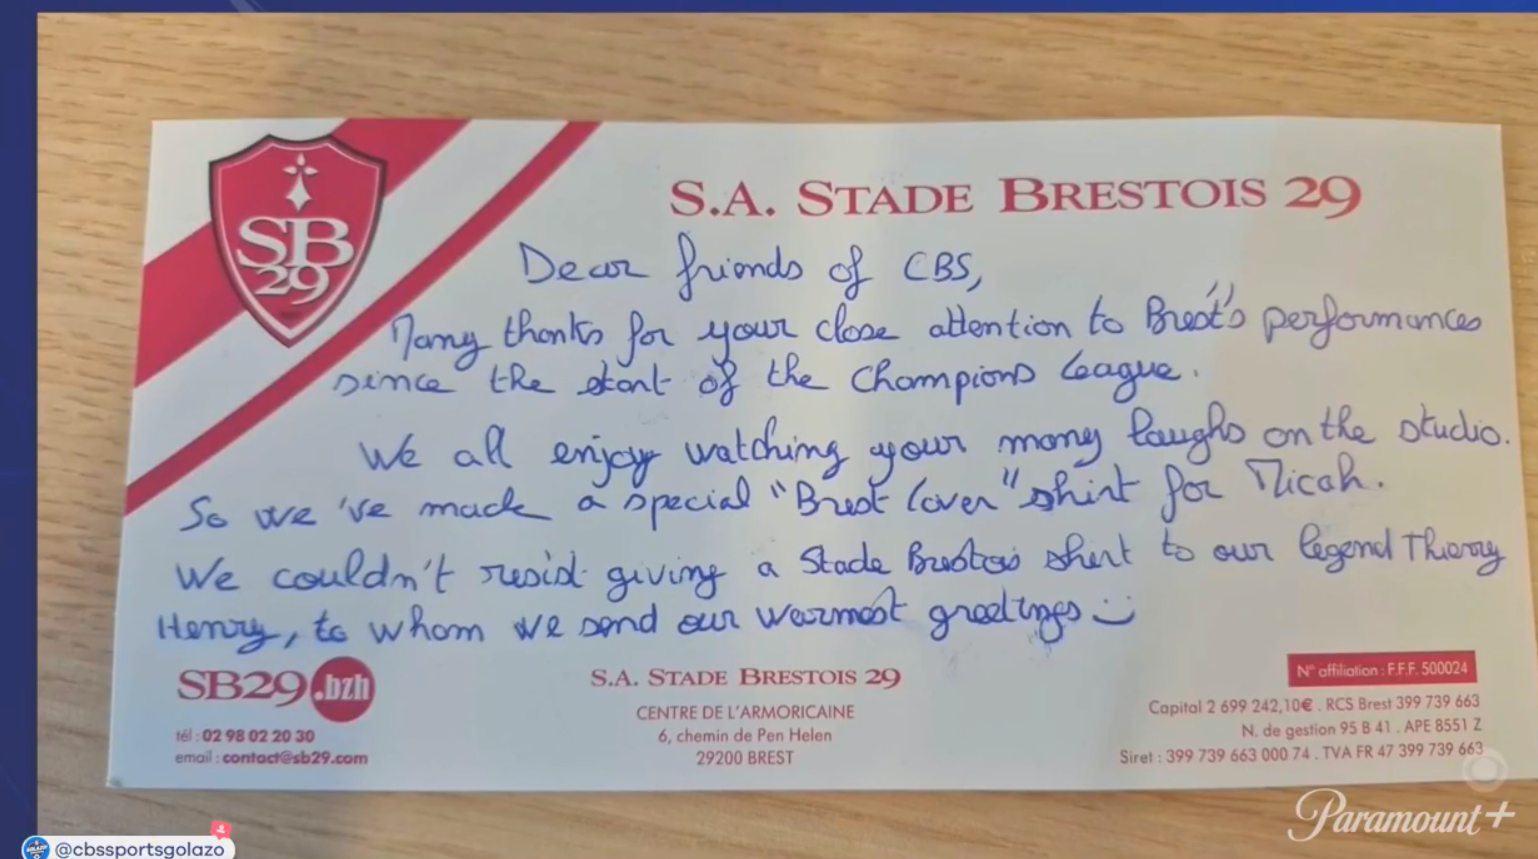 SB
29
S.A. STADE BRESTOIS 29
Dear friends of CBS,
Many thanks for your close attention to Brest's performances
since the start of the Champions League.
We all enjoy watching your many laughs on the studio.
So we've made a special "Brest lover" shirt for Micah.
We couldn't resist giving a Stade Brestois shirt to our legend Thierry
Henry, to whom we send our warmest greetings :)
SB29.bzh
tél : 02 98 02 20 30
email : contact@sb29.com
S.A. STADE BRESTOIS 29
CENTRE DE L'ARMORICAINE
6, chemin de Pen Helen
29200 BREST
N° affiliation : F.F.F. 500024
Capital 2 699 242,10€ . RCS Brest 399 739 663
N. de gestion 95 B 41 . APE 8551 Z
Siret : 399 739 663 000 74 . TVA FR 47 399 739 663
Paramount+
@cbssportsgolazo